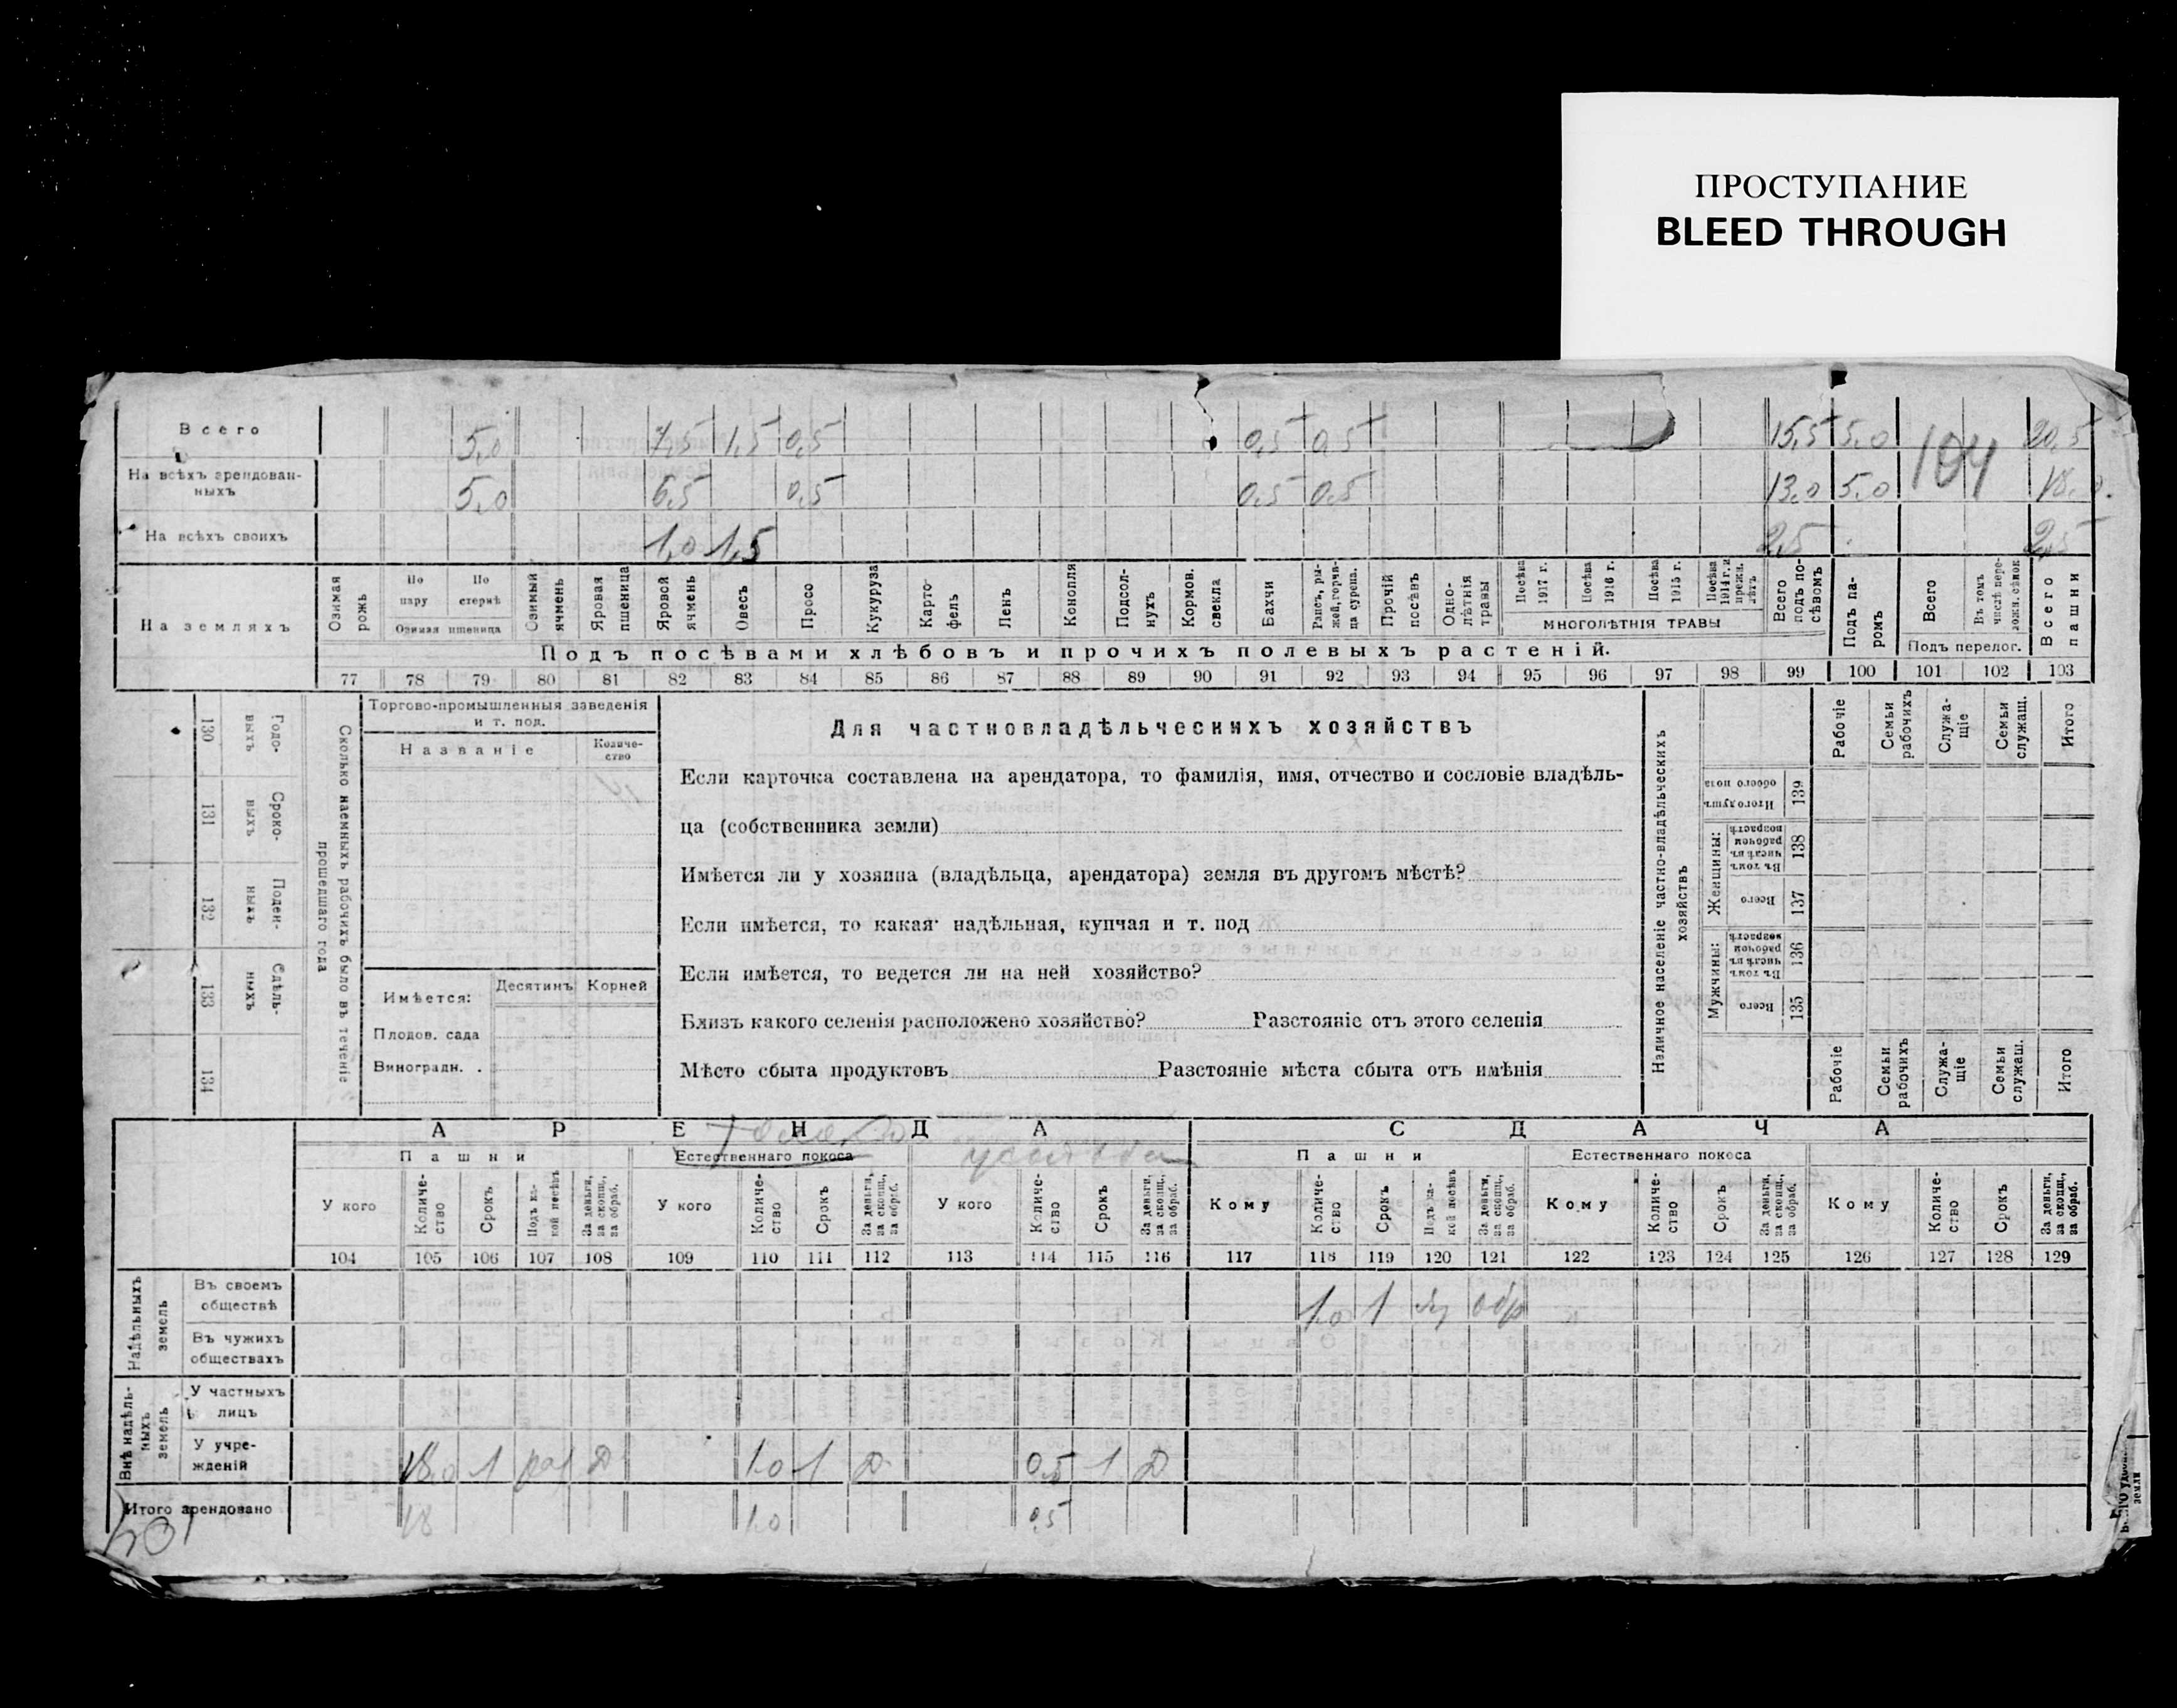 ПРОСТУПАНИЕ
BLEED THROUGH
Всего 5,0 7,5 1,5 0,5 0,5 0,5 15,5 5,0 20,5
На всѣхъ арендован-
ныхъ 5,0 6,5 0,5 0,5 0,5 13,0 5,0 104 18,0
На всѣхъ своихъ 1,0 1,5 2,5 2,5
На земляхъ
Озимая рожь
По пару
По стернѣ
Озимая пшеница
Озимый ячмень
Яровая пшеница
Яровой ячмень
Овесъ
Просо
Кукуруза
Карто-
фель
Ленъ
Конопля
Подсол-
нухъ
Кормов. свекла
Бахчи
Рапсъ, ры-
жей, горчи-
ца сурепа.
Прочій посѣвъ
Одно-
лѣтнія травы
Посѣва 1917 г.
Посѣва 1916 г.
Посѣва 1915 г.
Посѣва 1914 г. и прежн. лѣтъ
МНОГОЛѢТНІЯ ТРАВЫ
Всего подъ по-
сѣвомъ
Подъ па-
ромъ
Всего
Въ томъ числѣ пере-
ложн. сѣнок
Подъ перелог.
Всего пашни
Подъ посѣвами хлѣбовъ и прочихъ полевыхъ растеній.
77 78 79 80 81 82 83 84 85 86 87 88 89 90 91 92 93 94 95 96 97 98 99 100 101 102 103
130 Годо-
выхъ
131 Сроко-
выхъ
132 Поден-
ныхъ
133 Сдѣль-
ныхъ
134
Сколько наемныхъ рабочихъ было въ теченіе
прошедшаго года
Торгово-промышленныя заведенія
и т. под.
Названіе
Количе-
ство
Имѣется:
Десятинъ
Корней
Плодов. сада
Виноградн. .
Для частновладѣльческихъ хозяйствъ
Если карточка составлена на арендатора, то фамилія, имя, отчество и сословіе владѣль-
ца (собственника земли)
Имѣется ли у хозяина (владѣльца, арендатора) земля въ другомъ мѣстѣ?
Если имѣется, то какая: надѣльная, купчая и т. под
Если имѣется, то ведется ли на ней хозяйство?
Близъ какого селенія расположено хозяйство? Разстояніе отъ этого селенія
Мѣсто сбыта продуктовъ Разстояніе мѣста сбыта отъ имѣнія
Наличное населеніе частно-владѣльческихъ
хозяйствъ
Рабочіе
Семьи рабочихъ
Служа-
щіе
Семьи служащ.
Итого
Итого душъ обоего пола 139
Женщины:
Въ томъ числѣ въ рабочем возрастѣ 138
Всего 137
Мужчины:
Въ томъ числѣ въ рабочем возрастѣ 136
Всего 135
Рабочіе
Семьи рабочихъ
Служа-
щіе
Семьи служащ.
Итого
АРЕНДА
СДАЧА
Пашни
Естественнаго покоса
Пашни
Естественнаго покоса
У кого
Количе-
ство
Срокъ
Подъ ка-
кой посѣвъ
За деньги, за скопщ., за обраб.
У кого
Количе-
ство
Срокъ
За деньги, за скопщ., за обраб.
У кого
Количе-
ство
Срокъ
За деньги, за скопщ., за обраб.
Кому
Количе-
ство
Срокъ
Подъ ка-
кой посѣвъ
За деньги, за скопщ., за обраб.
Кому
Количе-
ство
Срокъ
За деньги, за скопщ., за обраб.
Кому
Количе-
ство
Срокъ
За деньги, за скопщ., за обраб.
104 105 106 107 108 109 110 111 112 113 114 115 116 117 118 119 120 121 122 123 124 125 126 127 128 129
Надѣльныхъ земель
Въ своемъ
обществѣ 1,0 1 обр
Въ чужихъ
обществахъ
Внѣ надѣль-
ныхъ земель
У частныхъ
лицъ
У учре-
жденій 18,0 1 раз Д 1,0 1 Д 0,5 1 Д
Итого арендовано 18 1,0 0,5
земли